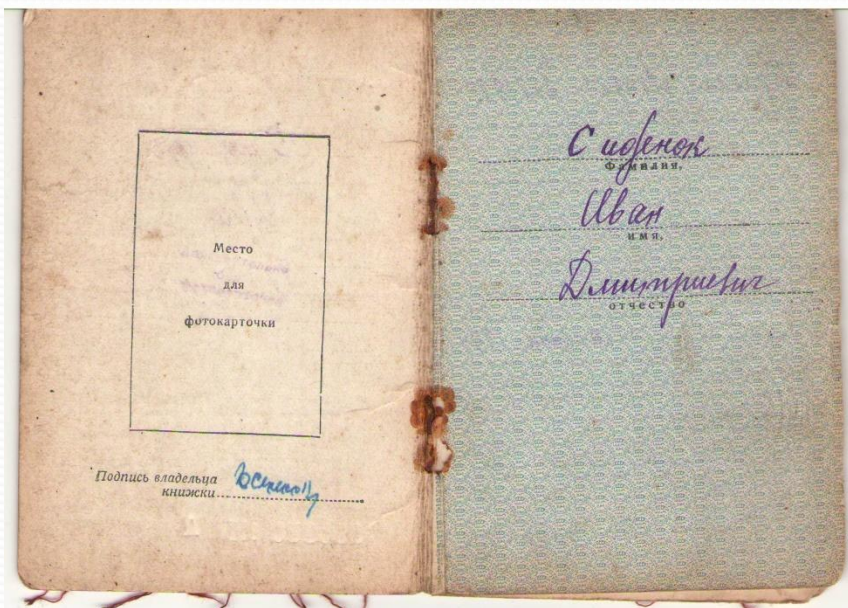 Место
для
фотокарточки
Подпись владельца
книжки
Сиденок
Фамилия,
Иван
имя,
Дмитриевич
отчество